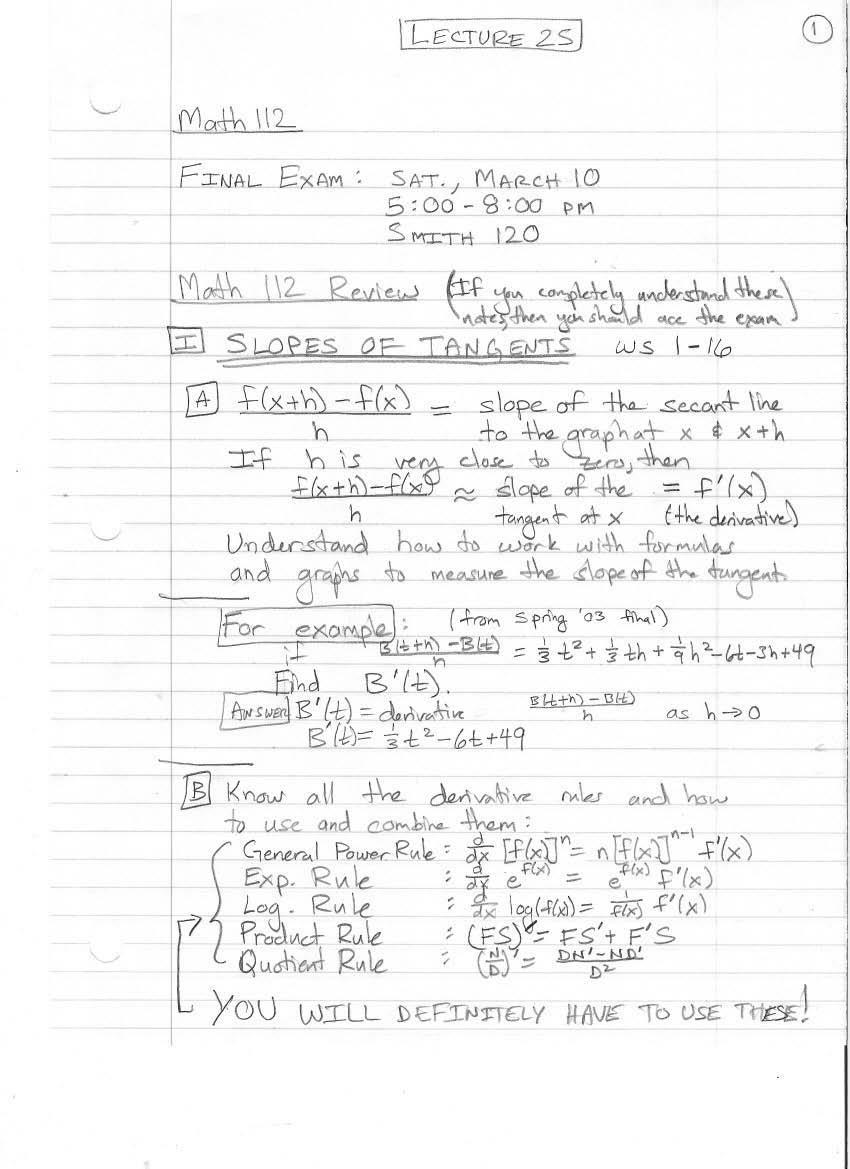 LECTURE 25
1
Math 112
FINAL EXAM: SAT., MARCH 10
5:00-8:00 PM
SMITH 120
Math 112 Review (If you completely understand these
notes, then you should ace the exam)
I SLOPES OF TANGENTS WS 1-16
A (f(x+h)-f(x))/h = slope of the secant line
to the graph at x & x+h
If h is very close to zero, then
(f(x+h)-f(x))/h ≈ slope of the = f'(x)
tangent at x (the derivative)
Understand how to work with formulas
and graphs to measure the slope of the tangent.
For example: (from Spring '03 final)
if (B(t+h)-B(t))/h = 1/3 t² + 1/3 th + 1/9 h² - 6t - 3h + 49
Find B'(t).
ANSWER B'(t) = derivative (B(t+h)-B(t))/h as h→0
B'(t) = 1/3 t² - 6t + 49
B Know all the derivative rules and how
to use and combine them:
General Power Rule: d/dx [f(x)]ⁿ = n[f(x)]ⁿ⁻¹ f'(x)
Exp. Rule : d/dx e^f(x) = e^f(x) f'(x)
Log. Rule : d/dx log(f(x)) = 1/f(x) f'(x)
Product Rule : (FS)' = FS' + F'S
Quotient Rule : (N/D)' = (DN'-ND')/D²
YOU WILL DEFINITELY HAVE TO USE THESE!